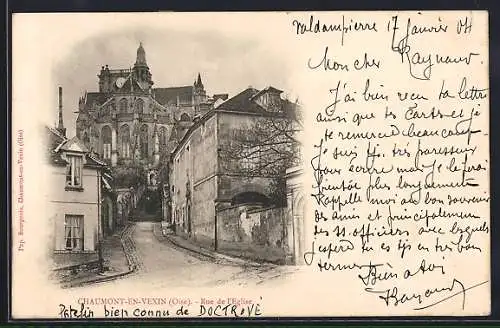 Valdampierre 17 Janvier 04
Mon cher Raynaud.
J'ai bien reçu ta lettre
ainsi que tes cartes et je
te remercie beaucoup
Je suis très paresseux
pour écrire mais je ferai
bientôt plus longuement
Rappelle moi au bon souvenir
des amis et principalement
des officiers avec lesquels
j'espère tu es très bien
Bien à toi
Pap. Bourgeois, Chaumont-en-Vexin (Oise)
CHAUMONT-EN-VEXIN (Oise). - Rue de l'Eglise
Patelin bien connu de DOCTROVE